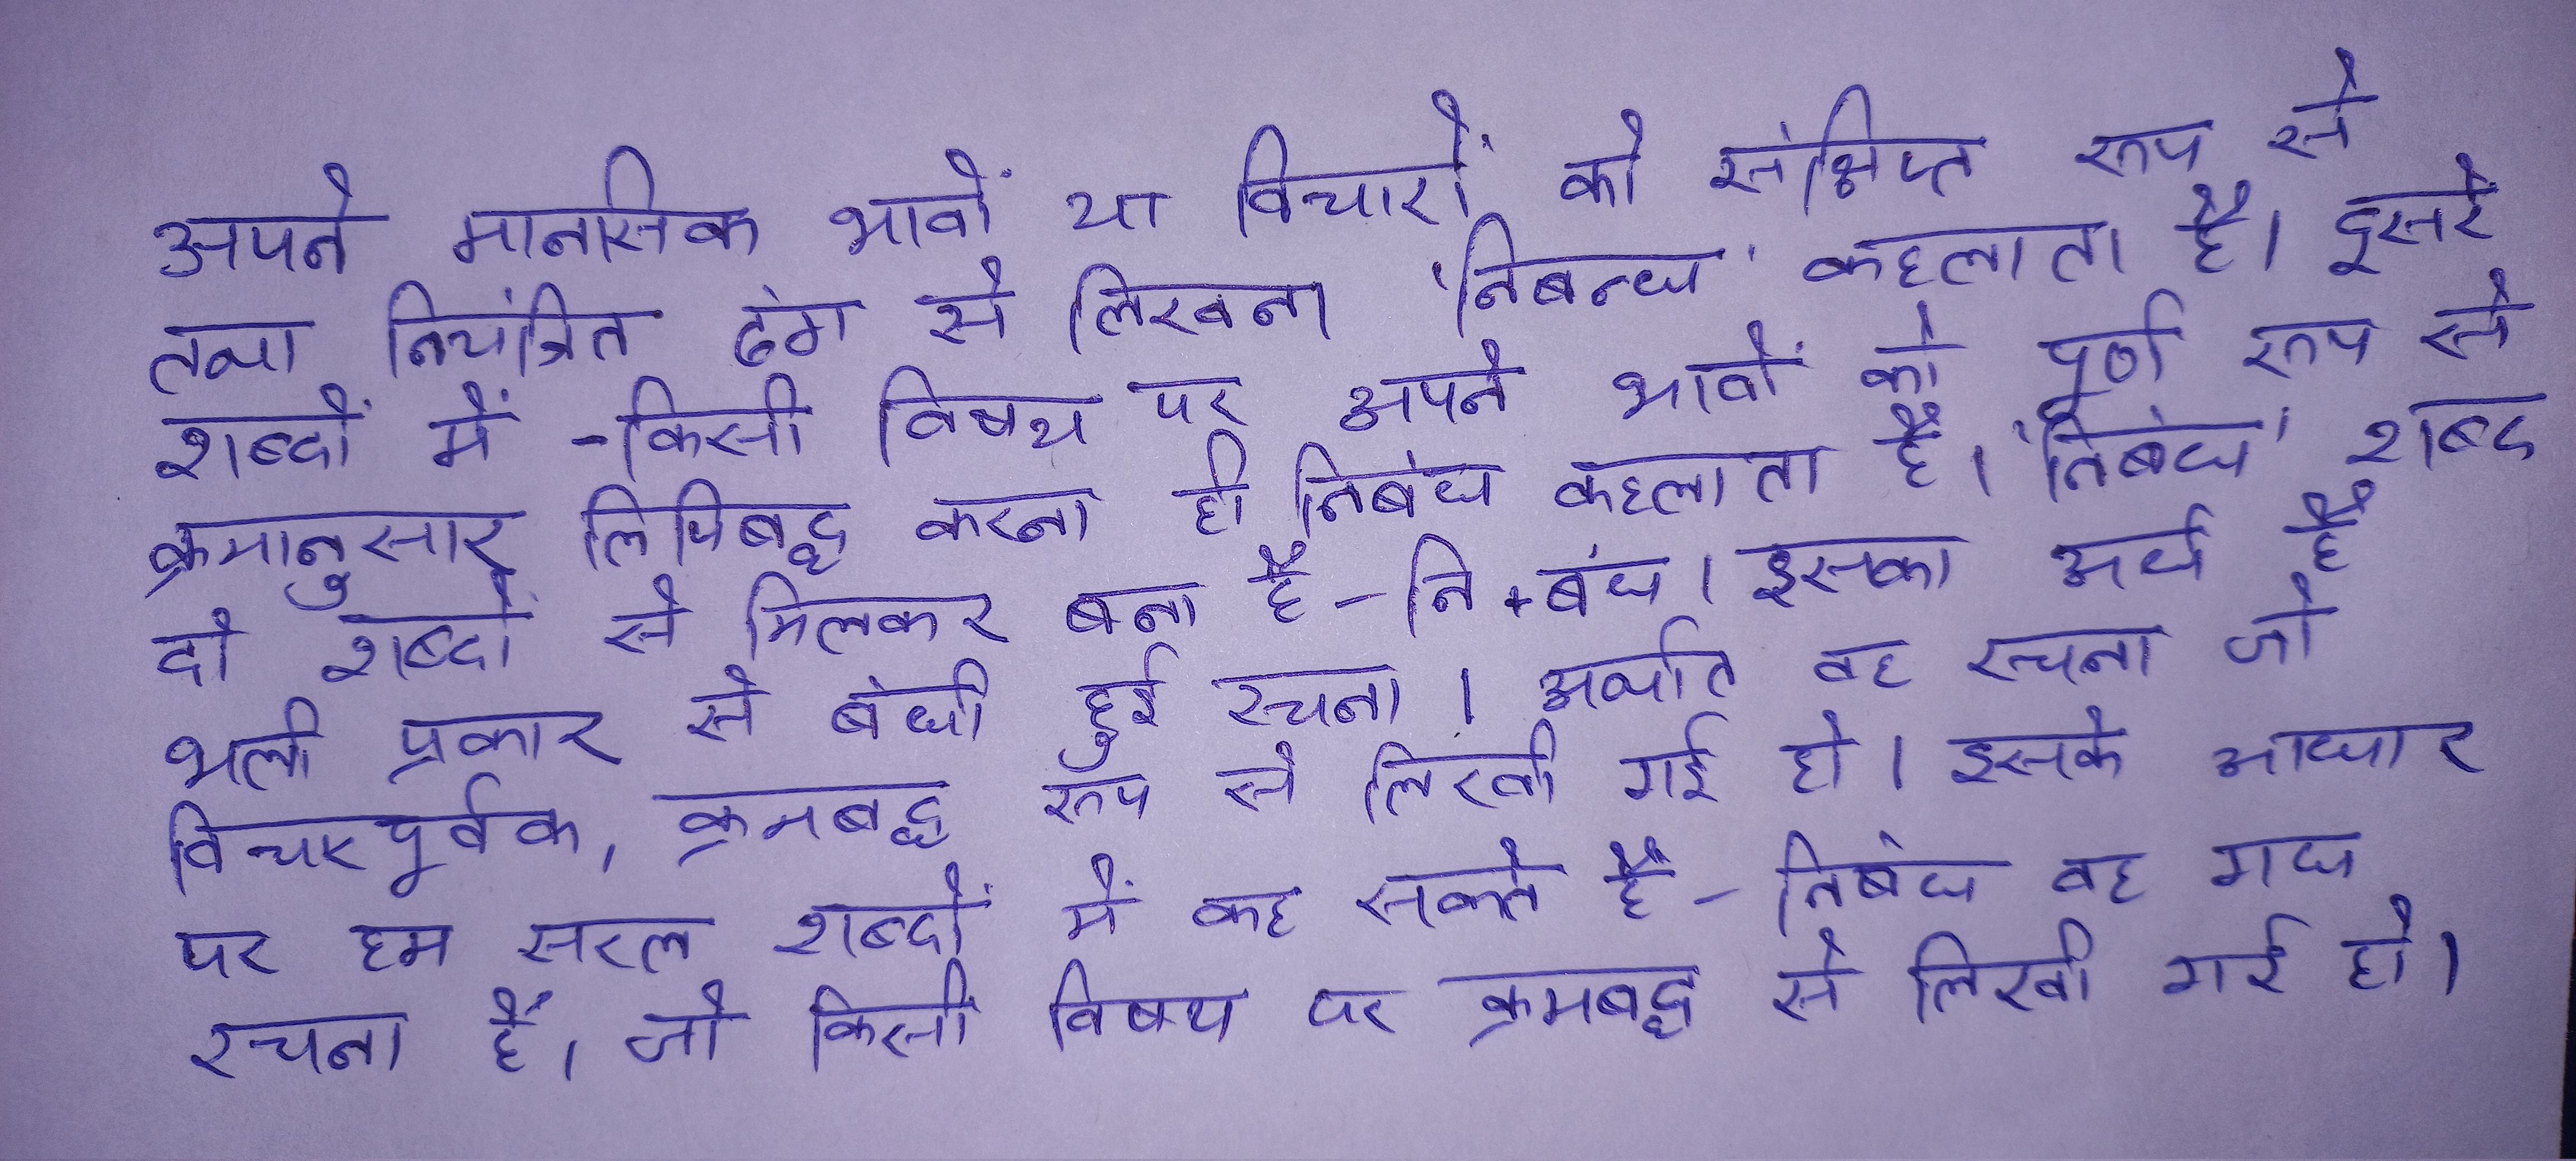 अपने मानसिक भावों या विचारों को संक्षिप्त रूप से
तथा नियंत्रित ढंग से लिखना 'निबन्ध' कहलाता है। दूसरे
शब्दों में - किसी विषय पर अपने भावों को पूर्ण रूप से
क्रमानुसार लिपिबद्ध करना ही निबंध कहलाता है। 'निबंध' शब्द
दो शब्दों से मिलकर बना है - नि + बंध। इसका अर्थ है
भली प्रकार से बंधी हुई रचना। अर्थात वह रचना जो
विचारपूर्वक, क्रमबद्ध रूप से लिखी गई हो। इसके आधार
पर हम सरल शब्दों में कह सकते हैं - निबंध वह गद्य
रचना है, जो किसी विषय पर क्रमबद्ध से लिखी गई हो।